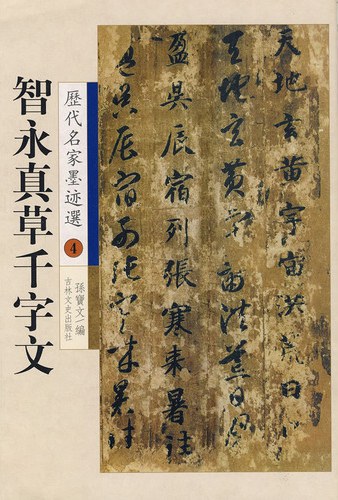 天地玄黄宇宙洪荒日月
天地玄黄宇宙洪荒日月
盈昃辰宿列張寒来暑往
盈昃辰宿列張寒来暑往
歷代名家墨迹選 4
孫寶文 編
吉林文史出版社
智永真草千字文